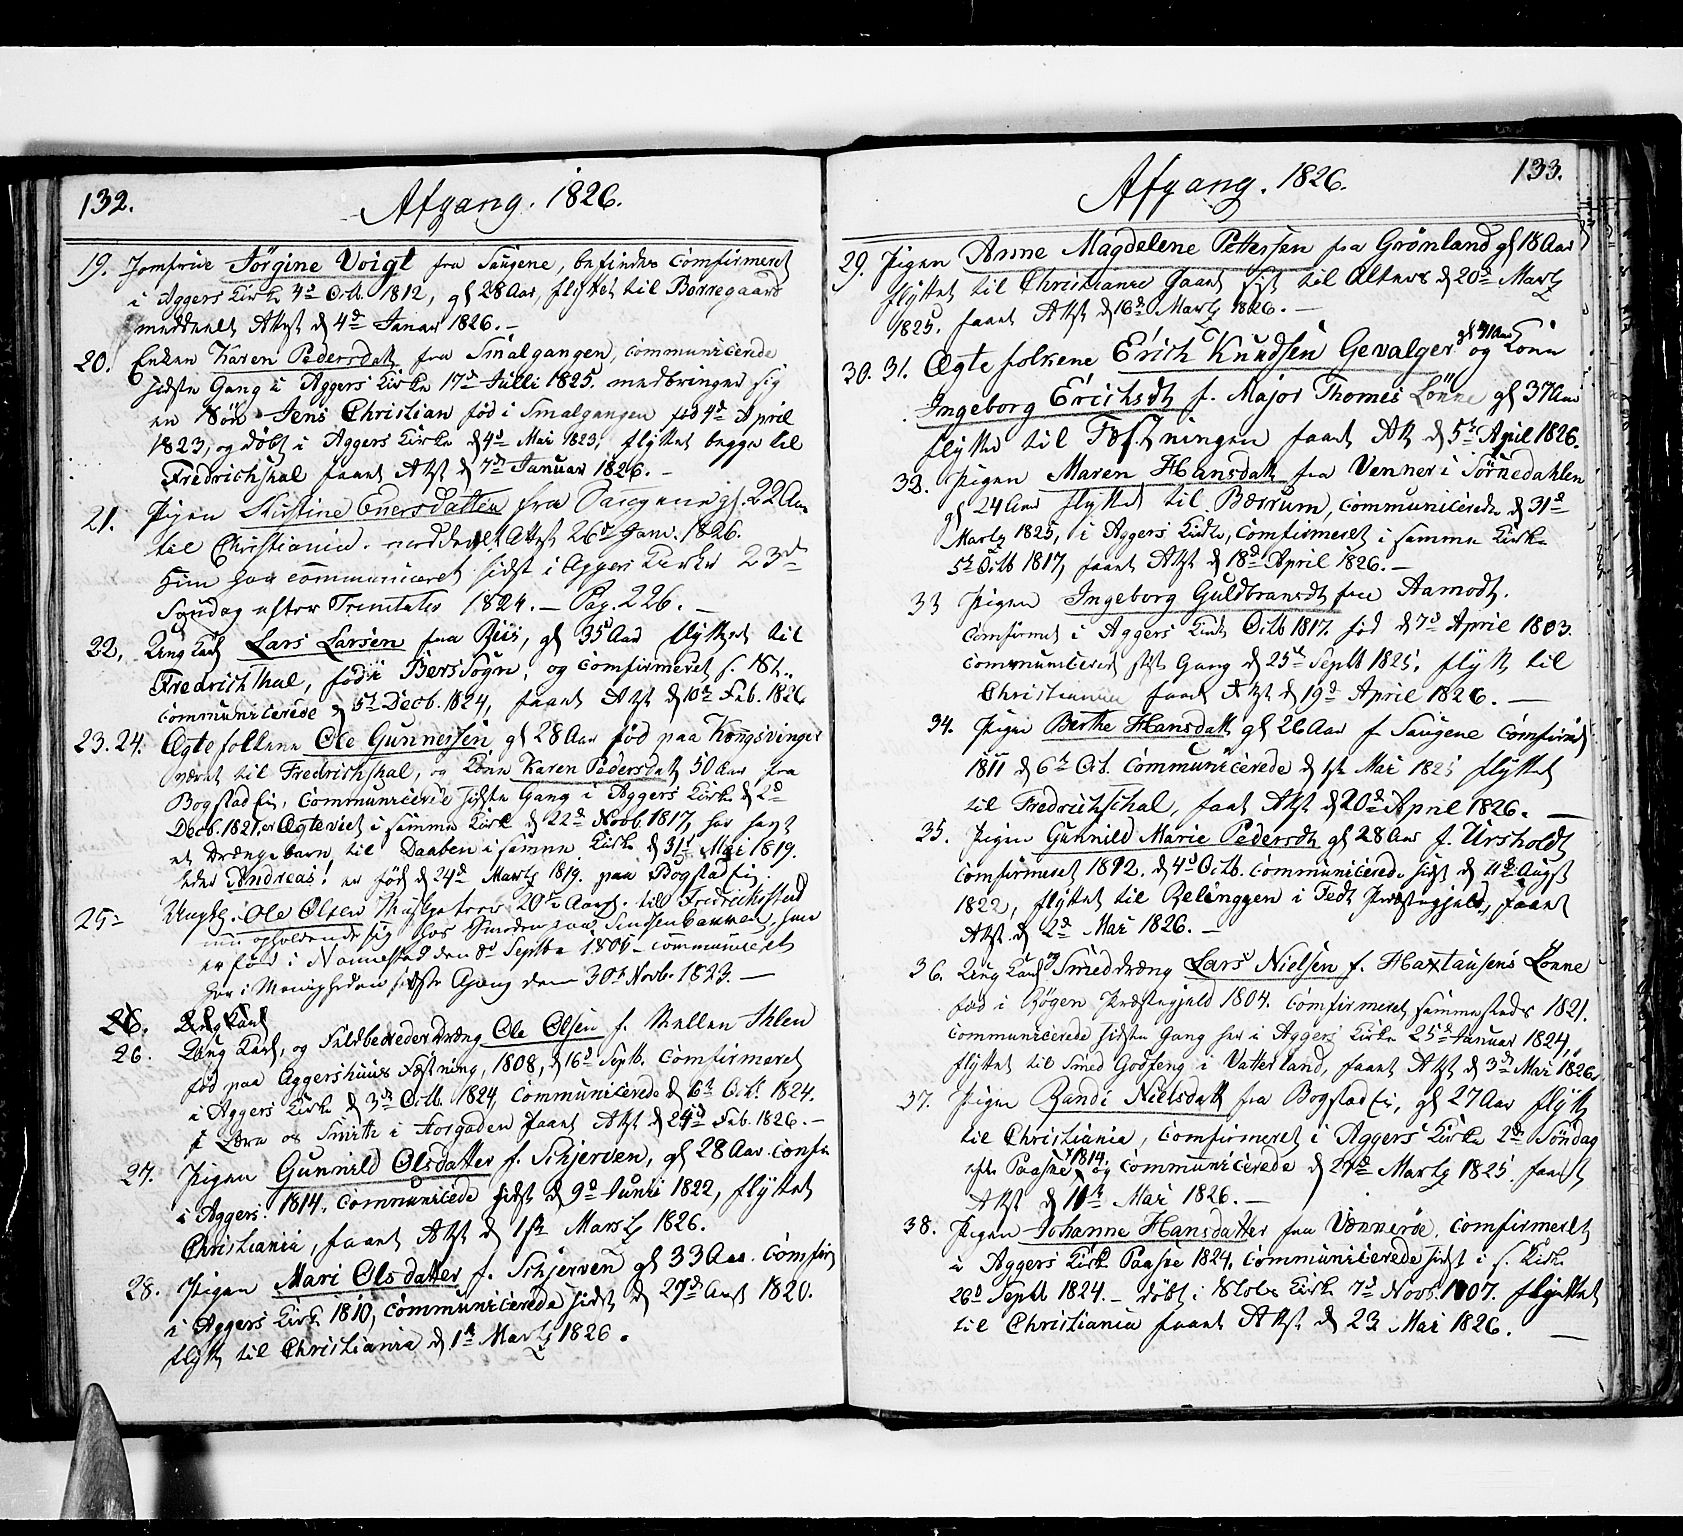 132.
Afgang. 1826.
19. Jomfrue Jörgine Voigt fra Saugene, befindes Comfirmeret
i Aggers Kirke 4d Octb. 1812, gl 28 Aar, flyttet til Borregaard
meddeelt Attst d 4d Januar 1826.
20. Enken Karen Pedersdatt fra Smalgangen, Communicerede
sidste Gang i Aggers Kirke 17d Julli 1825. medbringer sig
en Sön Jens Christian föd i Smalgangen fød 4d April
1823, og döbt i Aggers Kirke d 4d Mai 1823, flyttet begge til
Fredrichshal faaet Attst d 7d Januar 1826.
21. Pigen Kirstine Enersdatter fra Saugene gl. 22 Aar
til Christiania. meddeelt Attest 26d Janr. 1826.
Hun har communiceret sidst i Aggers Kirke 23d
Søndag efter Trinitatis 1824. Pag. 226.
22. Ung Karl Lars Larsen fra Riis, gl 35 Aar flyttet til
Fredrichshal, föd i Bers Sogn, og Comfirmeret s. St.
communicerede d 5d Decb. 1824, faaet Attst d 10d Feb. 1826
23. 24. Ægtefolkene Ole Gunneisen gl 28 Aar fød paa Kongsvinger
været til Fredrichshal, og Kone Karen Pedersdatt 50 Aar fra
Bogstad Ei, Communicerede sidste Gang i Aggers Kirke d 2d
Decb. 1821, er Ægteviet i samme Kirke d 22d Novb. 1817, har havt
et Drængebarn til Daaben i samme Kirke d 31d Mai 1819.
heder Andreas, er föd d 24d Martz 1819. paa Bogstad Ei.
25. Ungk. Ole Olsen 20 Aar g. til Fredrichstad
nu opholdende sig hos Smeden
er född i Nannestad den 8d Septbr 1805 communiceret
her i Menigheden sidste Gang den 30t Novb. 1823.
26. Ung Karl
26. Ung Karl, og Feldberederdræng Ole Olsen f. Mellem Ihlen
föd paa Aggershuus Fæstning, 1808, d 16d Septb. Comfirmeret
i Aggers Kirke d 3d Octb. 1824, Communicerede d 6d Octb. 1824.
i Lære os Smith i Torgaden faaet Attst d 24d Feb. 1826.
27. Pigen Gunnild Olsdatter f. Schjerven, gl 28 Aar Confir
i Aggers 1814. Communicede sidst d 9d Junii 1822, flyttet
Christiania, faaet Attst d 1ste Martz 1826.
28. Pigen Mari Olsdatter f. Schjerven gl 33 Aar. Comfir
i Aggers Kirke 1810, Communicerede sidst d 27d Aust 1820.
flytt til Christiania d 1st Martz 1826.
133.
Afgang. 1826.
29. Pigen Anne Magdelene Pettersen fra Grönland gl 18 Aar
flyttet til Christiania Gaaet sist til Alters d 20d Martz
1825. faaet Attst d 16d Martz 1826.
30. 31. Ægtefolkene Erich Knudsen Gevalger gl 41 Aar og Kone
Ingeborg Erichsdt f. Major Thomes Lönne gl 37 Aar
flytte til Fæstningen faaet Att d 5te April 1826.
32. Pigen Maren Hansdatt fra Venner i Sörkedahlen
gl 24 Aar flyttet til Bærrum, Communicerede d 31d
Martz 1825, i Aggers Kirke, Comfirmeret i samme Kirke
5te Octb 1817, faaet Attst d 18d April 1826.
33 Pigen Ingeborg Guldbransdt fra Aamodt.
Comfirmet i Aggers Kirke Octb 1817. föd d 7d April 1803.
Communicered sist Gang d 25d Septb 1825. flytt til
Christiania faaet Attst d 19d April 1826.
34. Pigen Berthe Hansdatt gl 26 Aar f Saugene Comfirmd
1811 d 6te Oct. Communicerede d 1ste Mai 1825 flyttet
til Fredrichschal, faaet Attst d 20d April 1826.
35. Pigen Gunnild Marie Pedersdt gl 28 Aar f. Ursholdt
Comfirmeret 1812. d 4d Octb. Communicerede sidst d 11d Augst
1822, flyttet til Relinggen i Fedt Præstegjeld, faaet
Attst d 2d Mai 1826.
36. Ung Karl og Smeddræng Lars Nielsen f. Haxtausens Lönne
fød i Röyen Præstegjeld 1804. Comfirmeret sammesteds 1821.
Communicerede sidste Gang her i Aggers Kirke 25d Januar 1824,
flyttet til Smed Godfeng i Vatterland, faaet Attst d 3d Mai 1826.
37. Pigen Randi Nielsdatt fra Bogstad Ei, gl 27 Aar flytt
til Christiania, Comfirmeret i Aggers Kirke 2den Söndag
efter Paaske 1814, og Communicerede d 27d Martz 1825. faaet
Attst d 11te Mai 1826.
38. Pigen Johanne Hansdatter fra Vænneröe, Comfirmeret
i Aggers Kirke Paaske 1824, Communicerede sidst i s. Kirke
26d Septb 1824. döbt i Kirke 7d Novb. 1807. flyttet
til Christiania faaet Attst d 23 Mai 1826.